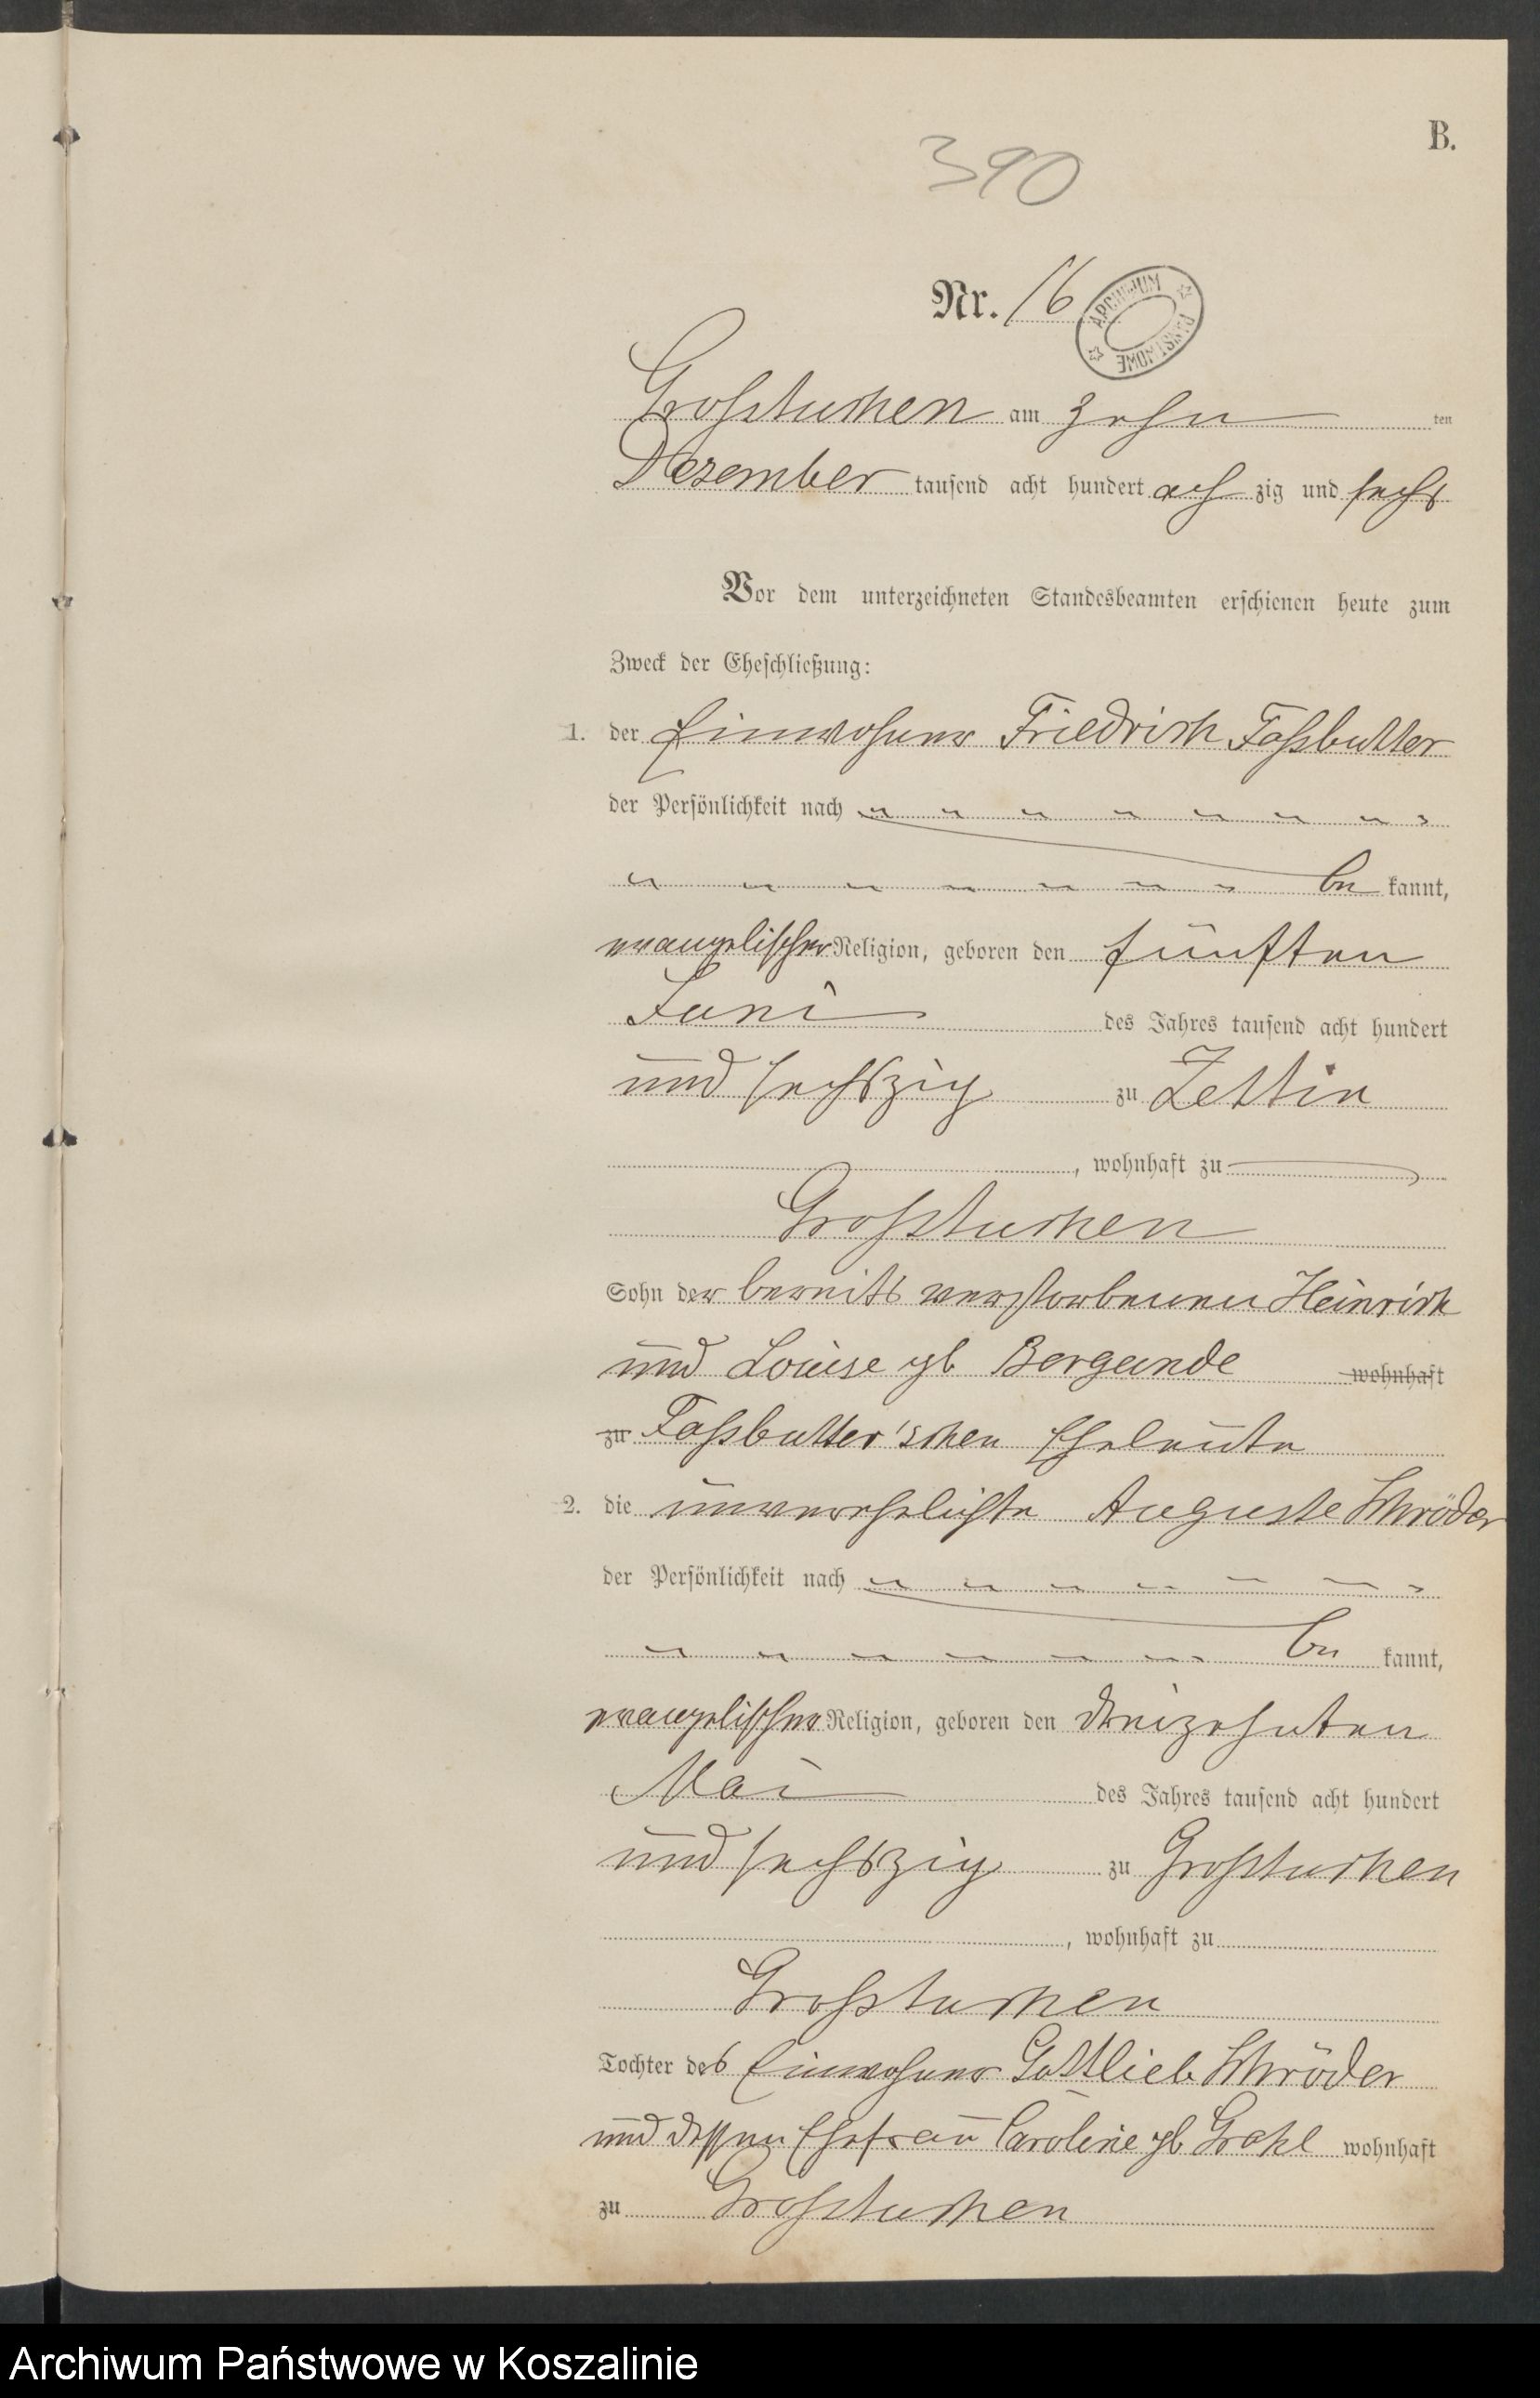 B.
390
Nr. 16
ARCHIWUM PAŃSTWOWE
Großtuchen am zehn ten
Dezember tausend acht hundert acht zig und sechs
Vor dem unterzeichneten Standesbeamten erschienen heute zum
Zweck der Eheschließung:
1. der Einwohner Friedrich Faßbutter
der Persönlichkeit nach
be kannt,
evangelischer Religion, geboren den fünften
Juni des Jahres tausend acht hundert
und sechszig zu Zettin
, wohnhaft zu
Großtuchen
Sohn der bereits verstorbenen Heinrich
und Louise gb Bergande wohnhaft
zu Faßbutter'schen Eheleute
2. die unverehelichte Auguste Schröder
der Persönlichkeit nach
be kannt,
evangelischer Religion, geboren den dreizehnten
Mai des Jahres tausend acht hundert
und sechszig zu Großtuchen
, wohnhaft zu
Großtuchen
Tochter des Einwohner Gottlieb Schröder
und dessen Ehefrau Caroline gb Grahl wohnhaft
zu Großtuchen
Archiwum Państwowe w Koszalinie